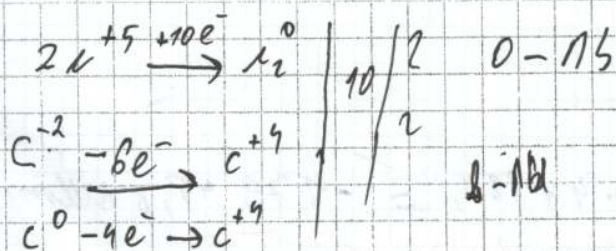 2N⁺⁵ +10e⁻ → N₂⁰ | 10 | 2 О – ПS
C⁻² –6e⁻ → C⁺⁴ | 2
C⁰ –4e⁻ → C⁺⁴